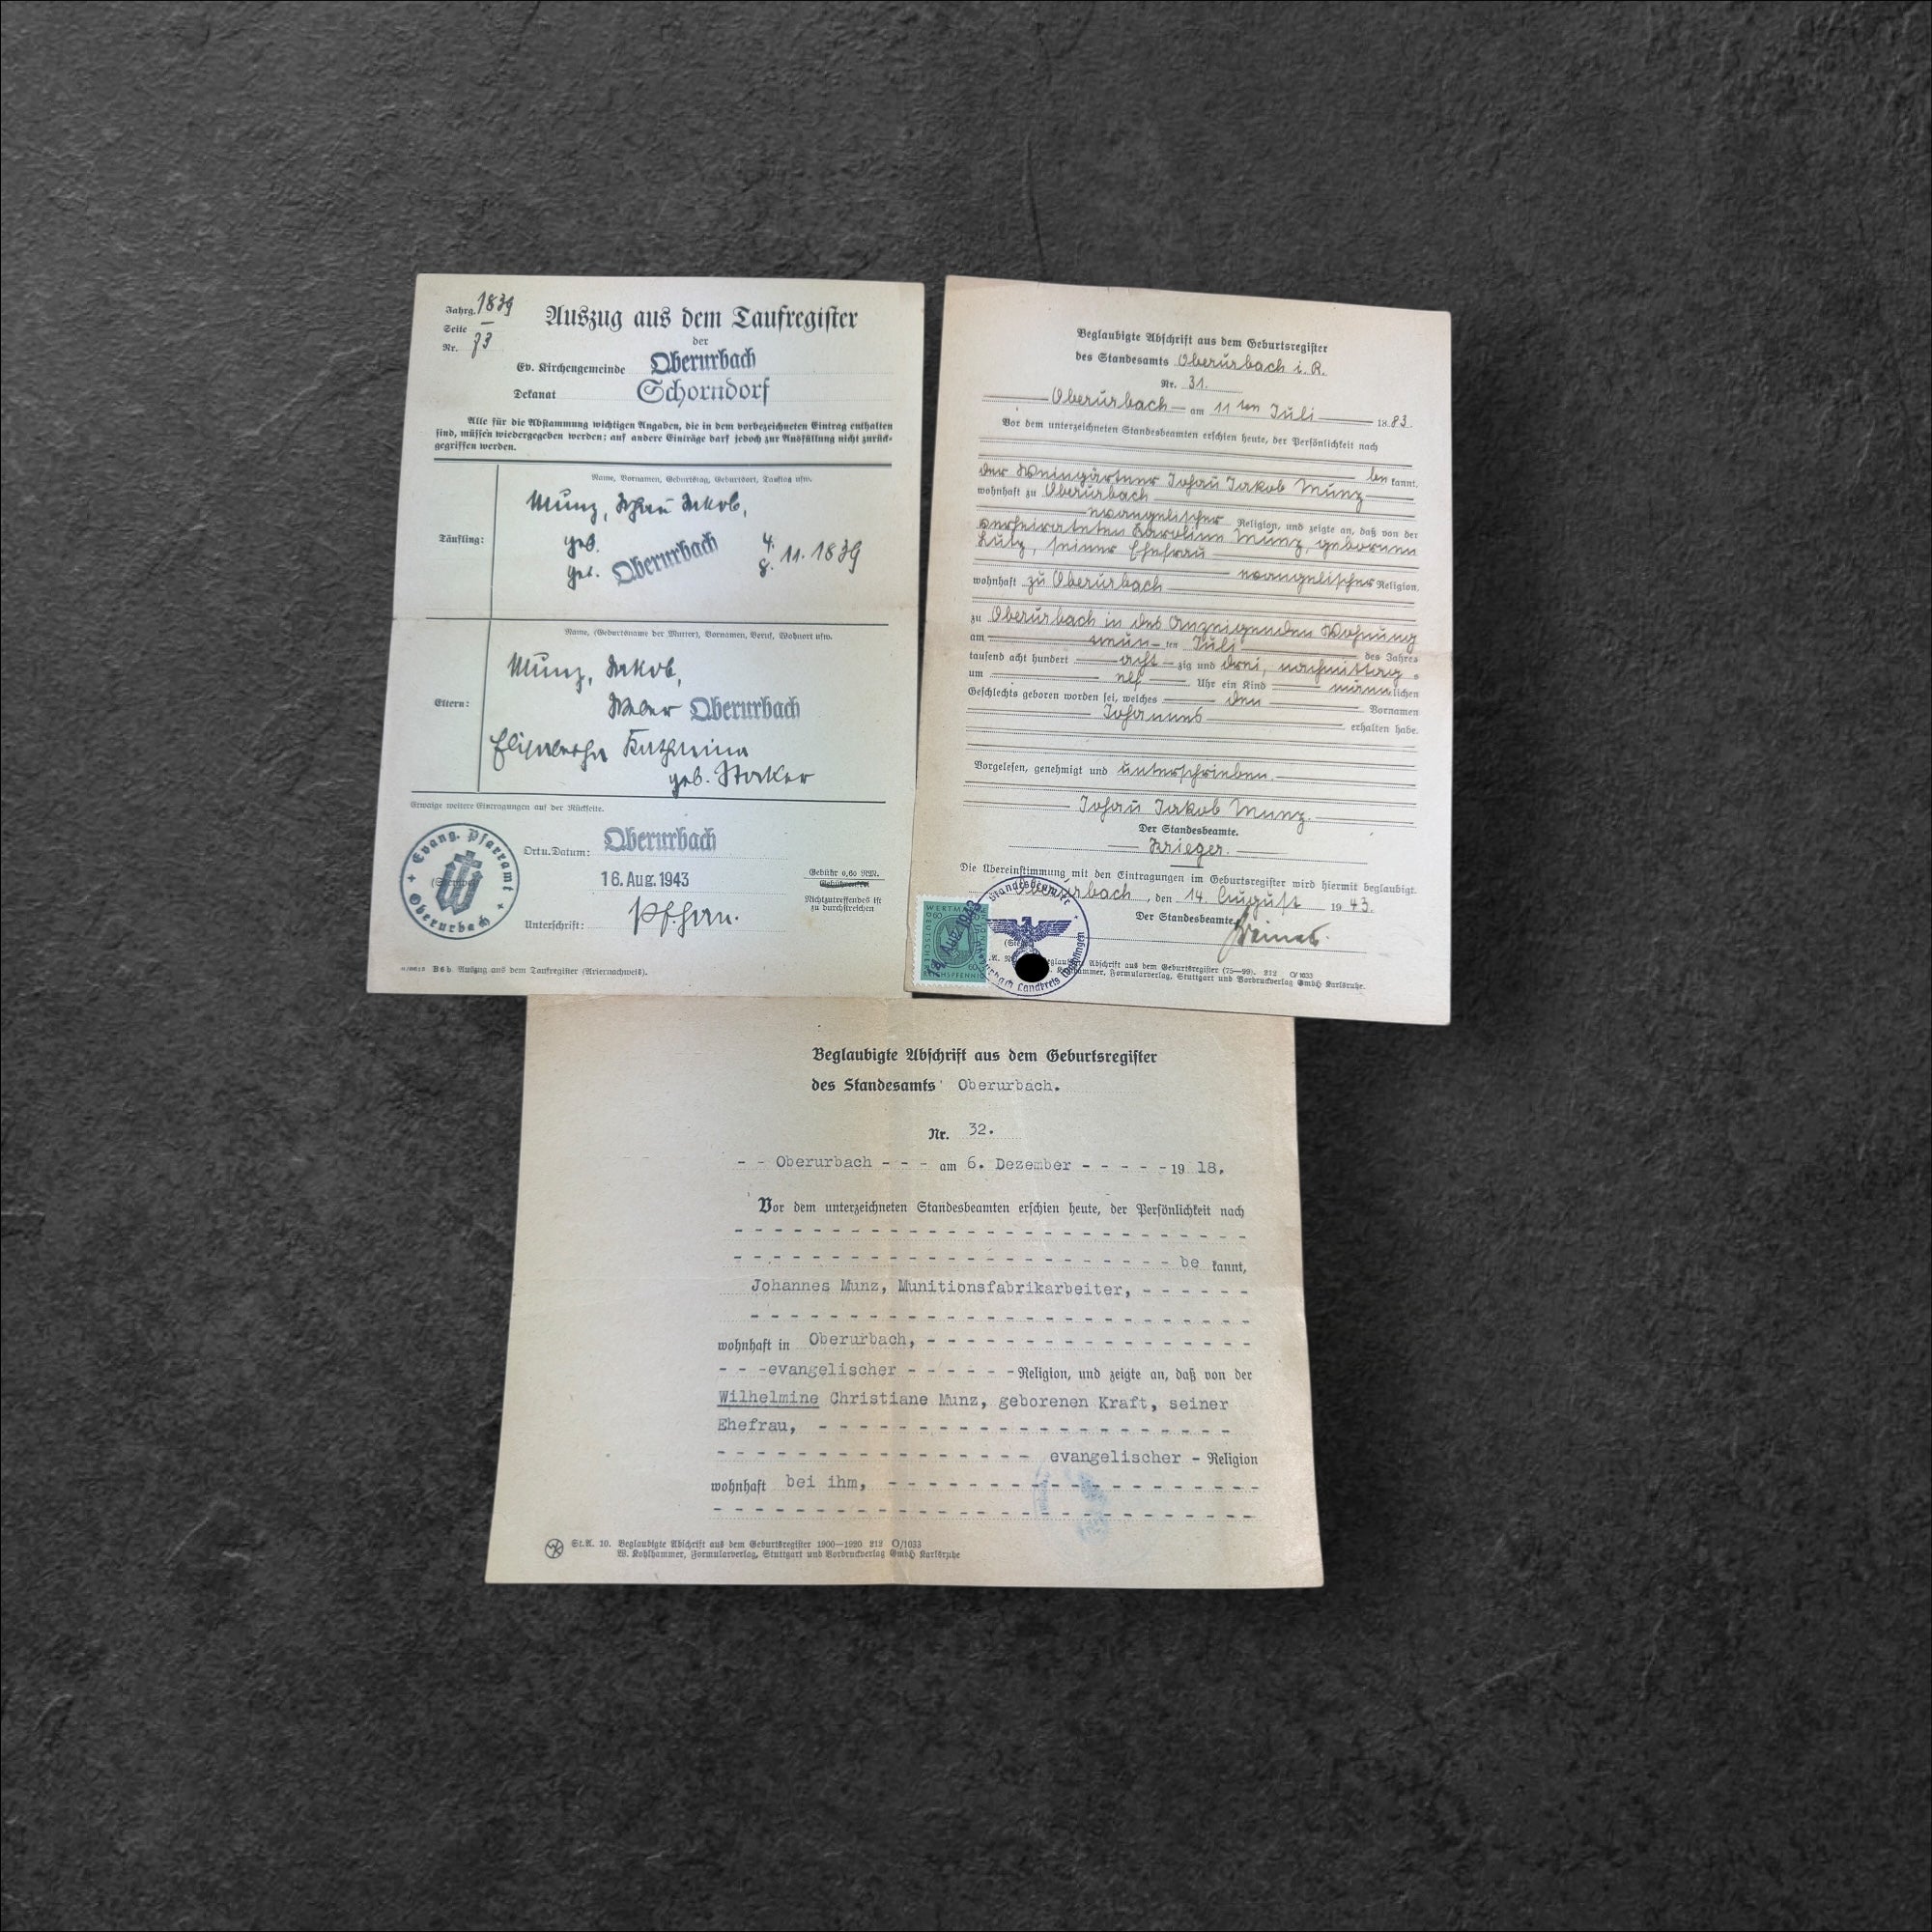 Jahrg. 1839
Seite —
Nr. 73
Auszug aus dem Taufregister
der
Ev. Kirchengemeinde Oberurbach
Dekanat Schorndorf
Alle für die Abstammung wichtigen Angaben, die in dem vorbezeichneten Eintrag enthalten
sind, müssen wiedergegeben werden; auf andere Einträge darf jedoch zur Ausfüllung nicht zurück-
gegriffen werden.
Name, Vornamen, Geburtstag, Geburtsort, Tauftag usw.
Täufling:
Munz, Johañ Jakob,
geb. 4.
get. Oberurbach 8. 11. 1839
Name, (Geburtsname der Mutter), Vornamen, Beruf, Wohnort usw.
Eltern:
Munz, Jakob,
Weber Oberurbach
Elisabetha Katharina
geb.
Etwaige weitere Eintragungen auf der Rückseite.
Evang. Pfarramt Oberurbach
Ort u. Datum: Oberurbach
16. Aug. 1943
Gebühr 0,60 RM.
Gebührenfrei
Nichtzutreffendes ist
zu durchstreichen
Unterschrift:
B 6 b Auszug aus dem Taufregister (Ariernachweis).
Beglaubigte Abschrift aus dem Geburtsregister
des Standesamts Oberurbach i. R.
Nr. 31.
Oberurbach am 11ten Juli 1883.
Vor dem unterzeichneten Standesbeamten erschien heute, der Persönlichkeit nach
bekannt,
der Weingärtner Johañ Jakob Munz
wohnhaft zu Oberurbach
evangelischer Religion, und zeigte an, daß von der
verheirateten Karoline Munz, geborenen
Lutz, seiner Ehefrau
evangelischer Religion,
wohnhaft zu Oberurbach
zu Oberurbach in des Anzeigenden Wohnung
am neun ten Juli des Jahres
tausend acht hundert acht zig und drei, nachmittags
um elf Uhr ein Kind männlichen
Geschlechts geboren worden sei, welches den Vornamen
Johannes erhalten habe.
Vorgelesen, genehmigt und unterschrieben.
Johañ Jakob Munz.
Der Standesbeamte.
Krieger.
Die Übereinstimmung mit den Eintragungen im Geburtsregister wird hiermit beglaubigt.
Oberurbach, den 14. August 1943.
Der Standesbeamte
14. Aug. 1943
Abschrift aus dem Geburtsregister (75—99). 212 O/1033
Formularverlag, Stuttgart und Vordruckverlag GmbH Karlsruhe.
Beglaubigte Abschrift aus dem Geburtsregister
des Standesamts Oberurbach.
Nr. 32.
- - Oberurbach - - - am 6. Dezember - - - - - 19 18.
Vor dem unterzeichneten Standesbeamten erschien heute, der Persönlichkeit nach
be kannt,
Johannes Munz, Munitionsfabrikarbeiter,
wohnhaft in Oberurbach,
- - -evangelischer - - - - - -Religion, und zeigte an, daß von der
Wilhelmine Christiane Munz, geborenen Kraft, seiner
Ehefrau,
evangelischer - Religion
wohnhaft bei ihm,
St.A. 10. Beglaubigte Abschrift aus dem Geburtsregister 1900—1920 212 O/1033
W. Kohlhammer, Formularverlag, Stuttgart und Vordruckverlag GmbH Karlsruhe